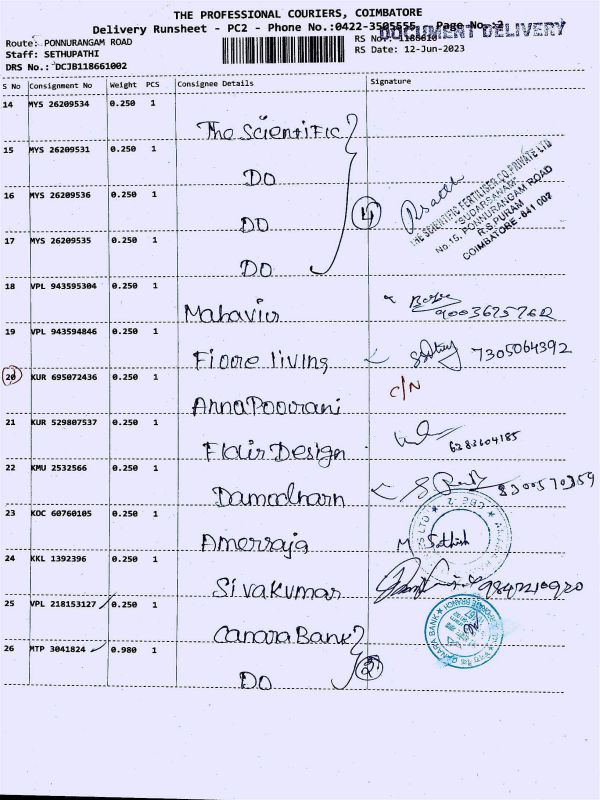 THE PROFESSIONAL COURIERS, COIMBATORE
Delivery Runsheet - PC2 - Phone No.:0422-3505555 Page No.:2
DOCUMENT DELIVERY
Route: PONNURANGAM ROAD
Staff: SETHUPATHI
DRS No.: DCJB118661002
RS No.: 1186610
RS Date: 12-Jun-2023
S No Consignment No Weight PCS Consignee Details Signature
14 MYS 26209534 0.250 1
The Scientific
15 MYS 26209531 0.250 1
DO
16 MYS 26209536 0.250 1
DO
17 MYS 26209535 0.250 1
DO
4
THE SCIENTIFIC FERTILISER CO. PRIVATE LTD
"SUDARSANAM"
No.15, PONNURANGAM ROAD
R.S.PURAM
COIMBATORE-641 002
18 VPL 943595304 0.250 1
Mahavir
9003625762
19 VPL 943594846 0.250 1
Fiore living
7305064392
20 KUR 695072436 0.250 1
AnnaPoorani
C/N
21 KUR 529807537 0.250 1
Flair Design
6283604185
22 KMU 2532566 0.250 1
Damodharn
8300570359
23 KOC 60760105 0.250 1
Amerraja
M Sathish
24 KKL 1392396 0.250 1
Sivakumar
9842210920
25 VPL 218153127 0.250 1
Canara Bank
CANARA BANK
26 MTP 3041824 0.980 1
DO
2